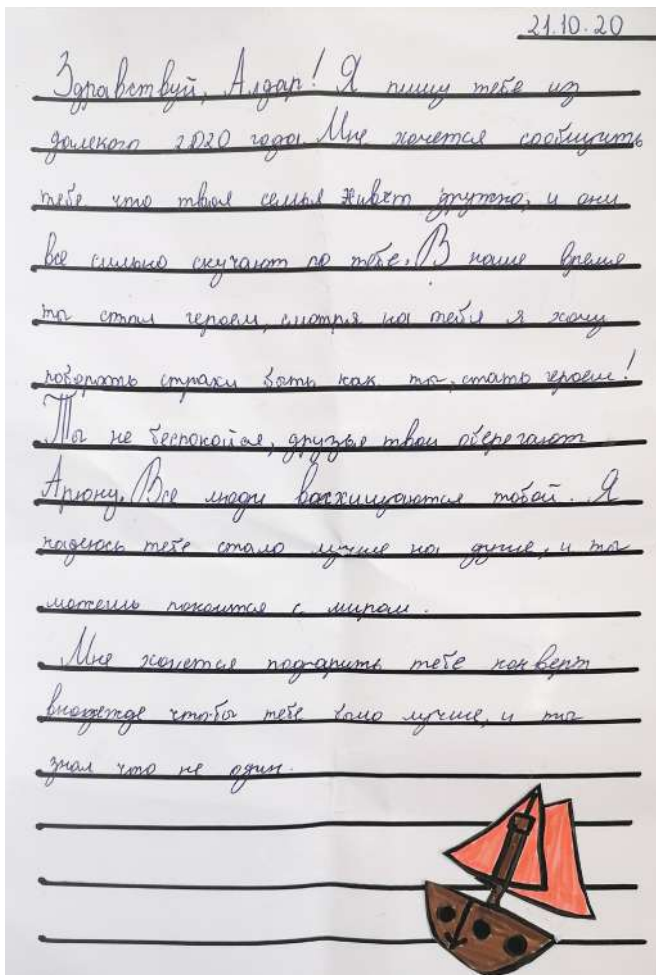 21.10.20
Здравствуй, Алдар! Я пишу тебе из
далекого 2020 года. Мне хочется сообщить
тебе что твоя семья живёт дружно, и они
все сильно скучают по тебе. В наше время
ты стал героем, смотря на тебя я хочу
побороть страхи быть как ты, стать героем!
Ты не беспокойся, друзья твои оберегают
Арюну. Все люди восхищаются тобой. Я
надеюсь тебе стало лучше на душе, и ты
можешь покоится с миром.
Мне хочется подарить тебе конверт
внадежде чтобы тебе было лучше, и ты
знал что не один.